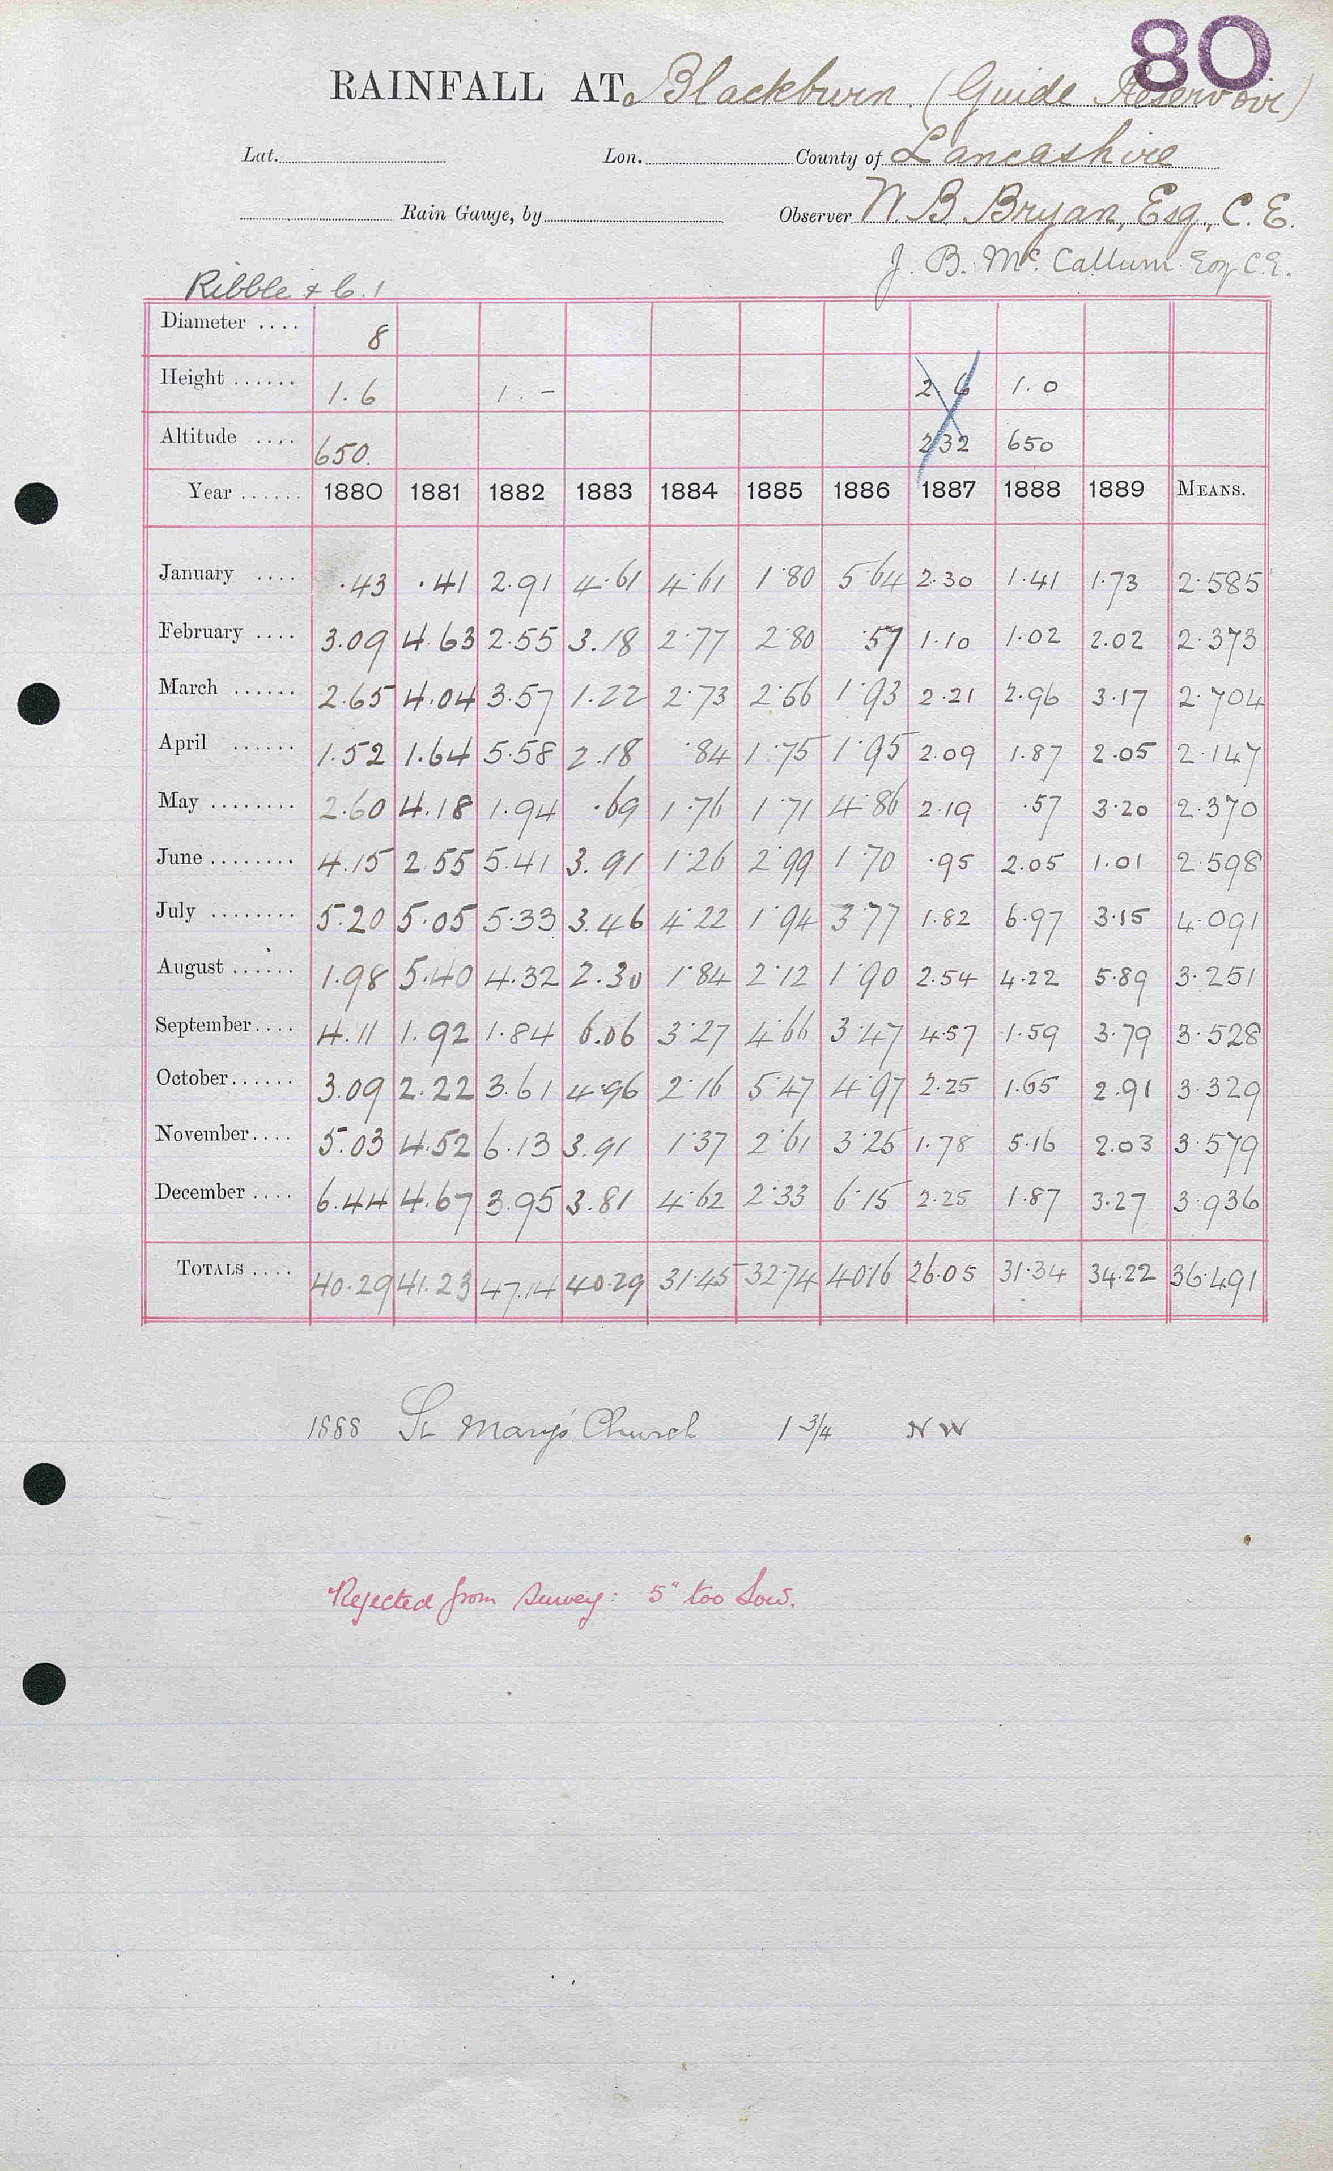 80
RAINFALL AT Blackburn (Guide Reservoir)
Lat. Lon. County of Lancashire
Rain Gauge, by Observer W. B. Bryan, Esq., C. E.
J. B. Mc. Callum Esq C.E.
Ribble & C. 1
Diameter .... 8
Height ...... 1.6 1. - 2.6 1.0
Altitude .... 650. 232 650
Year ...... 1880 1881 1882 1883 1884 1885 1886 1887 1888 1889 MEANS.
January .... .43 .41 2.91 4.61 4.61 1.80 5.64 2.30 1.41 1.73 2.585
February .... 3.09 4.63 2.55 3.18 2.77 2.80 .57 1.10 1.02 2.02 2.373
March ...... 2.65 4.04 3.57 1.22 2.73 2.56 1.93 2.21 2.96 3.17 2.704
April ...... 1.52 1.64 5.58 2.18 .84 1.75 1.95 2.09 1.87 2.05 2.147
May ........ 2.60 4.18 1.94 .69 1.76 1.71 4.86 2.19 .57 3.20 2.370
June ........ 4.15 2.55 5.41 3.91 1.26 2.99 1.70 .95 2.05 1.01 2.598
July ........ 5.20 5.05 5.33 3.46 4.22 1.94 3.77 1.82 6.97 3.15 4.091
August ...... 1.98 5.40 4.32 2.30 1.84 2.12 1.90 2.54 4.22 5.89 3.251
September.... 4.11 1.92 1.84 6.06 3.27 4.66 3.47 4.57 1.59 3.79 3.528
October...... 3.09 2.22 3.61 4.96 2.16 5.47 4.97 2.25 1.65 2.91 3.329
November.... 5.03 4.52 6.13 3.91 1.37 2.61 3.25 1.78 5.16 2.03 3.579
December .... 6.44 4.67 3.95 3.81 4.62 2.33 6.15 2.25 1.87 3.27 3.936
TOTALS .... 40.29 41.23 47.14 40.29 31.45 32.74 40.16 26.05 31.34 34.22 36.491
1888 St Mary's Church 1 3/4 NW
Rejected from Survey: 5" too low.